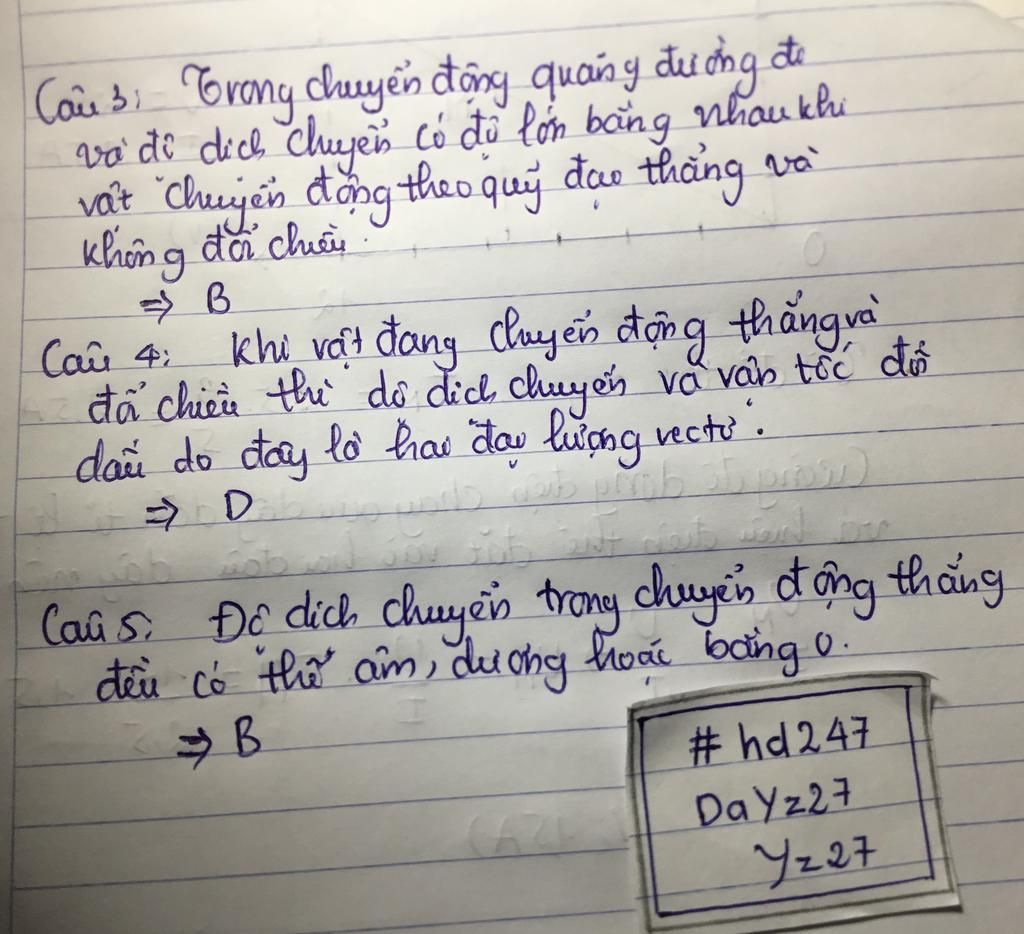 Câu 3: Trong chuyển động quãng đường đi
và độ dịch chuyển có độ lớn bằng nhau khi
vật chuyển động theo quỹ đạo thẳng và
không đổi chiều.
=> B
Câu 4: Khi vật đang chuyển động thẳng và
đổi chiều thì độ dịch chuyển và vận tốc đổi
dấu do đây là hai đại lượng vectơ.
=> D
Câu 5: Độ dịch chuyển trong chuyển động thẳng
đều có thể âm, dương hoặc bằng 0.
=> B
# hd247
DaYz27
Yz27